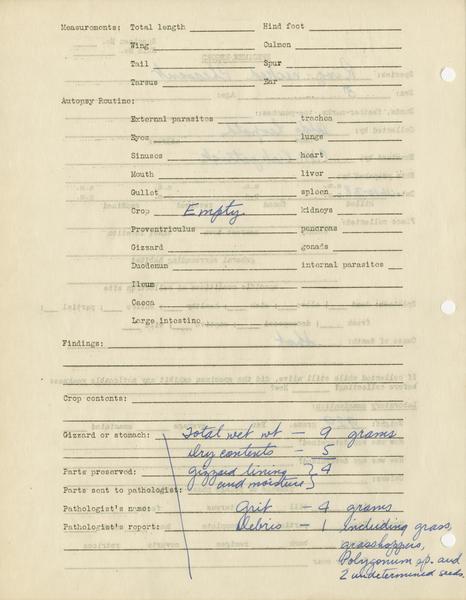 Measurements: Total length Hind foot
Wing Culmen
Tail Spur
Tarsus Ear
Autopsy Routine:
External parasites trachea
Eyes lungs
Sinuses heart
Mouth liver
Gullet spleen
Crop Empty kidneys
Proventriculus pancreas
Gizzard gonads
Duodenum internal parasites
Ileum
Caeca
Large intestine
Findings:
Crop contents:
Gizzard or stomach: Total wet wt - 9 grams
Dry contents - 5
Parts preserved: gizzard lining } 4
Parts sent to pathologist: and moisture }
Pathologist's name: Grit - 4 grams
Pathologist's report: Debris - 1 including grass,
grasshoppers,
Polygonum sp. and
2 undetermined seeds.